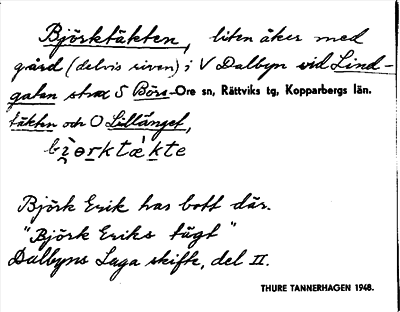 Björktäkten, liten åker med
gård (delvis riven) i V Dalbyn vid Lind-
gatan strax S Börs- Ore sn, Rättviks tg, Kopparbergs län.
täkten och O Lillänget,
Björk Erik has bott där.
"Björk Eriks tägt"
Dalbyns Laga skifte, del II.
THURE TANNERHAGEN 1948.